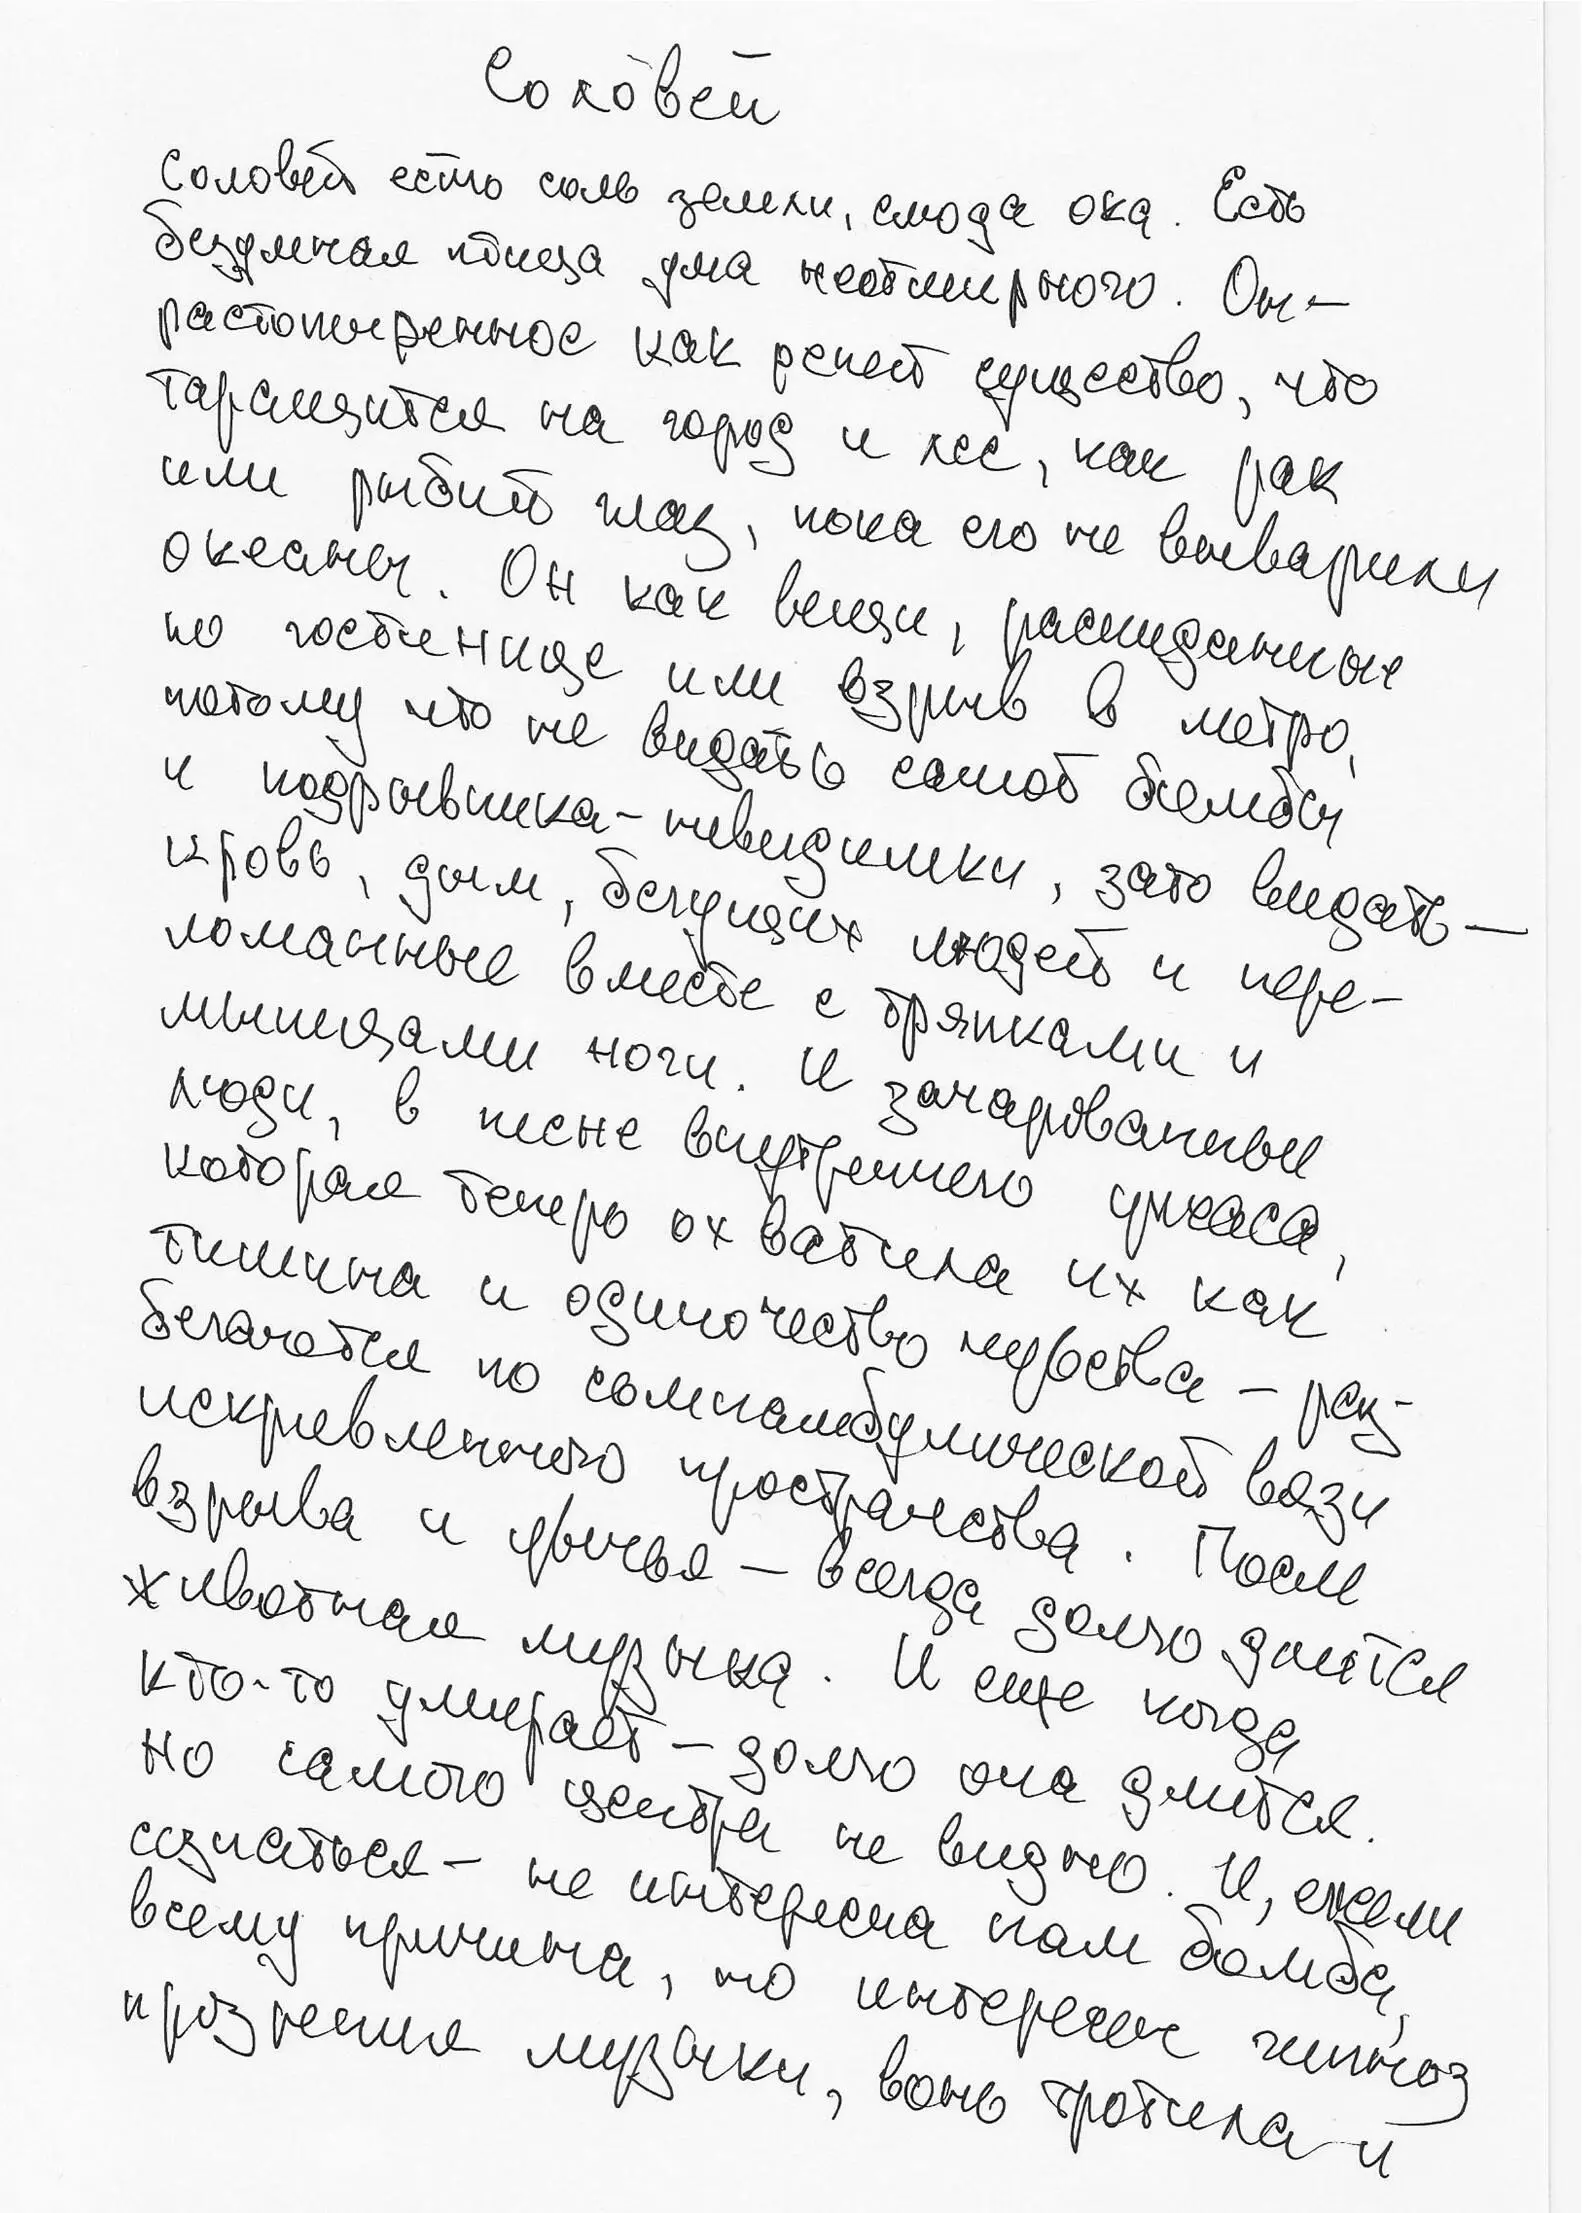 Соловей
Соловей есть соль земли, слюда ока. Есть
безумная птица ума неотмирного. Он –
растопыренное как репей существо, что
таращится на город и лес, как рак
или рыбий глаз, пока его не выварили
океаны. Он как вещи, раскиданные
по гостинице или взрыв в метро,
потому что не видать самой бомбы
и подрывника-невидимки, зато видать –
кровь, дым, бегущих людей и пере-
ломанные вместе с тряпками и
мышцами ноги. И зачарованные
люди, в песне внутреннего ужаса,
которая теперь охватила их как
тишина и одиночество чувства – раз-
бегаются по сомнамбулической вязи
искривленного пространства. После
взрыва и убитья – всегда долго длится
животная музыка. И еще когда
кто-то умирает – долго она длится.
Но самого центра не видно. И, ежели
сознаться – не интересна нам бомба,
всему причина, но интересен гипноз
прозрения музыки, вонь тротила и